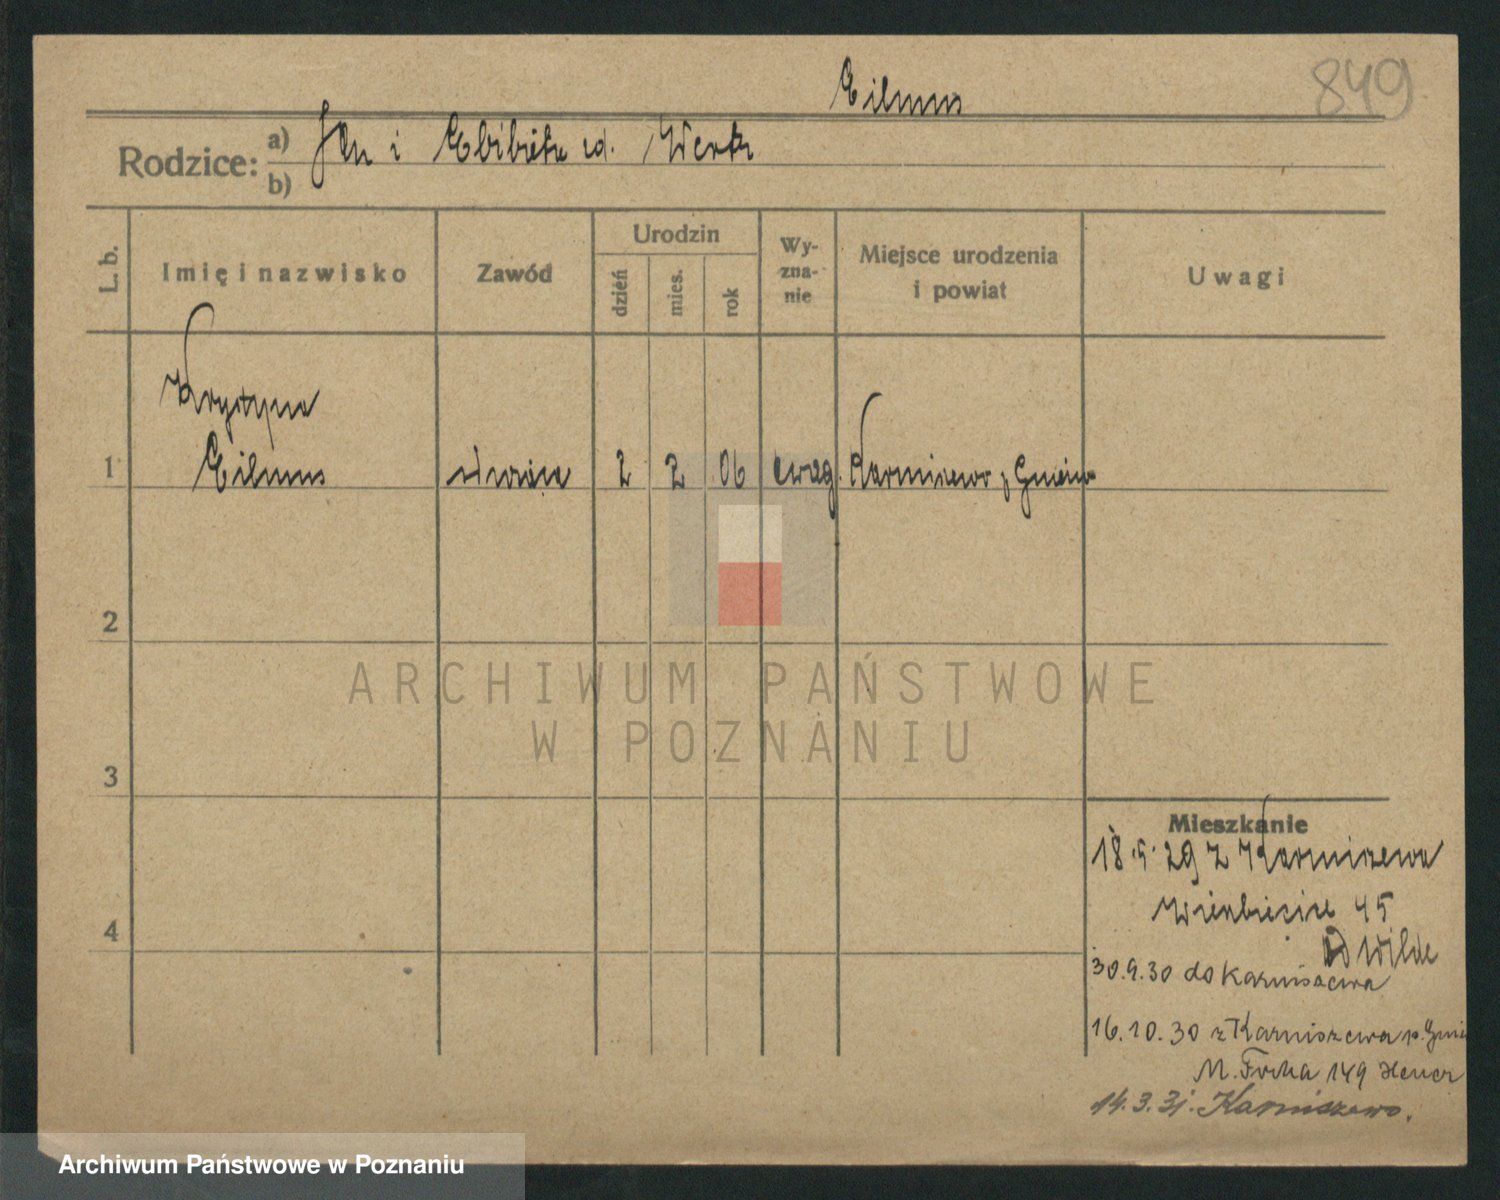 849
Eilmus
Rodzice: a) Jan i Elbieta zd. Werk
b)
L. b. Imię i nazwisko Zawód Urodzin dzień mies. rok Wy-zna-nie Miejsce urodzenia i powiat Uwagi
Krystyna
1 Eilmus 2 2 06 ewag. Karniszewo p Gniezno
2
ARCHIWUM PAŃSTWOWE
W POZNANIU
3
Mieszkanie
18.5.29 z Karniszewa
Wierzbięcice 45
Wilde
4
30.9.30 do Karniszewa
16.10.30 z Karniszewa p. Gnie
M. Focha 149
14.3.31. Karniszewo.
Archiwum Państwowe w Poznaniu